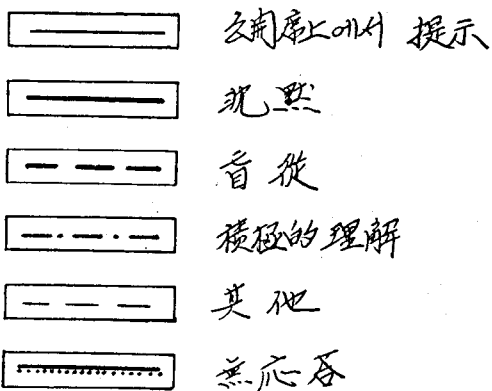 公開席上에서 提示
沈默
盲從
積極的 理解
其他
無応答